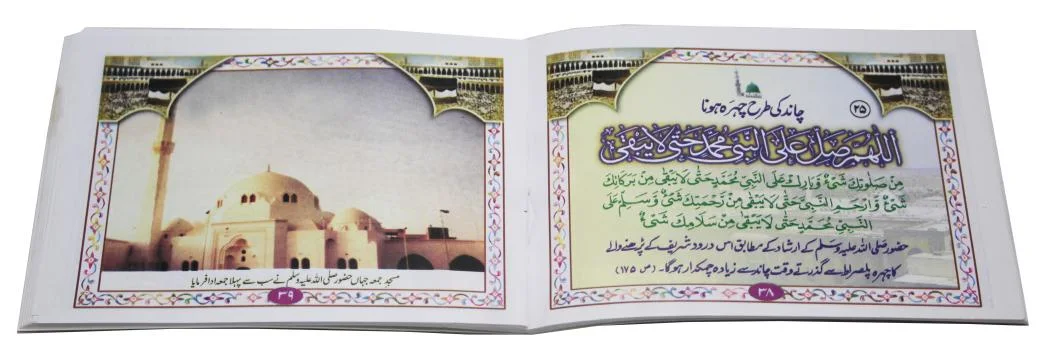 ۲۵
چاند کی طرح چہرہ ہونا
اَللّٰهُمَّ صَلِّ عَلَى النَّبِيِّ مُحَمَّدٍ حَتّٰى لَا يَبْقٰى
مِنْ صَلٰوتِكَ شَيْءٌ وَّبَارِكْ عَلَى النَّبِيِّ مُحَمَّدٍ حَتّٰى لَا يَبْقٰى مِنْ بَرَكَاتِكَ
شَيْءٌ وَّارْحَمِ النَّبِيَّ حَتّٰى لَا يَبْقٰى مِنْ رَّحْمَتِكَ شَيْءٌ وَّسَلِّمْ عَلَى
النَّبِيِّ مُحَمَّدٍ حَتّٰى لَا يَبْقٰى مِنْ سَلَامِكَ شَيْءٌ
حضور صلی اللہ علیہ وسلم کے ارشاد کے مطابق اس درود شریف کے پڑھنے والے
کا چہرہ پلصراط سے گذرتے وقت چاند سے زیادہ چمکدار ہوگا۔ (ص ۱۷۵)
۳۸
مسجد جمعہ جہاں حضور صلی اللہ علیہ وسلم نے سب سے پہلا جمعہ ادا فرمایا
۳۹